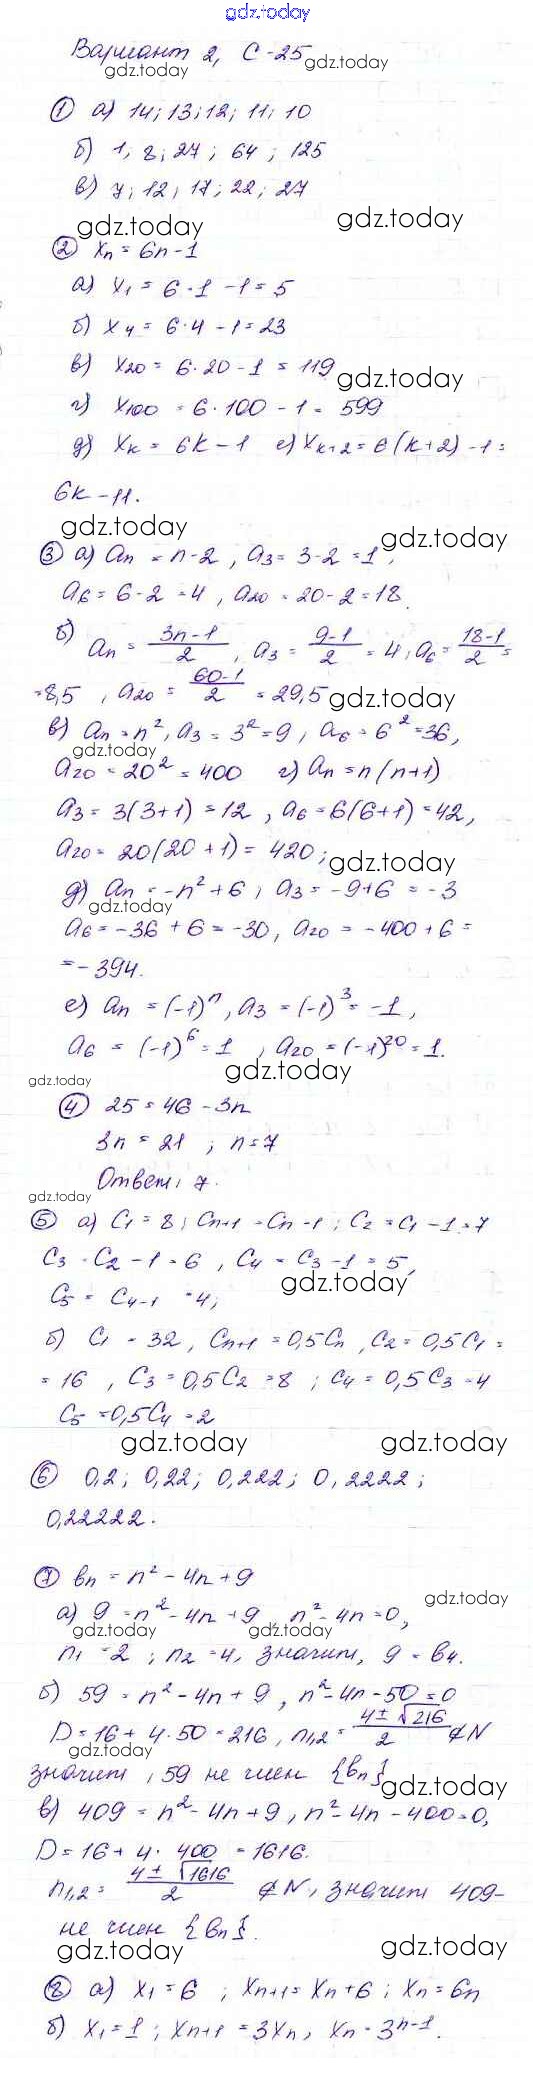 gdz.today
Вариант 2, С-25
gdz.today gdz.today
① а) 14; 13; 12; 11; 10
б) 1, 8; 27; 64; 125
в) 7; 12; 17; 22; 27
gdz.today gdz.today
② xₙ = 6n-1
а) x₁ = 6·1 -1 = 5
б) x₄ = 6·4 -1 = 23
в) x₂₀ = 6·20 - 1 = 119
gdz.today
г) x₁₀₀ = 6·100 - 1 = 599
д) xₖ = 6k - 1 е) xₖ₊₂ = 6(k+2) -1 =
6k - 11.
gdz.today gdz.today
③ а) aₙ = n-2, a₃ = 3-2 = 1,
a₆ = 6-2 = 4, a₂₀ = 20-2 = 18.
б) aₙ = (3n-1)/2, a₃ = (9-1)/2 = 4, a₆ = (18-1)/2 =
= 8,5, a₂₀ = (60-1)/2 = 29,5 gdz.today
в) aₙ = n², a₃ = 3² = 9, a₆ = 6² = 36,
gdz.today
a₂₀ = 20² = 400 г) aₙ = n(n+1)
a₃ = 3(3+1) = 12, a₆ = 6(6+1) = 42,
a₂₀ = 20(20+1) = 420;
gdz.today
д) aₙ = -n²+6, a₃ = -9+6 = -3
gdz.today
a₆ = -36+6 = -30, a₂₀ = -400+6 =
= -394.
е) aₙ = (-1)ⁿ, a₃ = (-1)³ = -1,
a₆ = (-1)⁶ = 1, a₂₀ = (-1)²⁰ = 1.
gdz.today gdz.today
④ 25 = 46 - 3n
3n = 21; n = 7
Ответ: 7.
gdz.today
⑤ а) C₁ = 8; Cₙ₊₁ = Cₙ - 1; C₂ = C₁ - 1 = 7
C₃ = C₂ - 1 = 6, C₄ = C₃ - 1 = 5,
gdz.today
C₅ = C₄₋₁ = 4;
б) C₁ = 32, Cₙ₊₁ = 0,5Cₙ, C₂ = 0,5C₁ =
= 16, C₃ = 0,5C₂ = 8; C₄ = 0,5C₃ = 4
C₅ = 0,5C₄ = 2
gdz.today gdz.today
⑥ 0,2; 0,22; 0,222; 0,2222;
0,22222.
⑦ bₙ = n² - 4n + 9
gdz.today
а) 9 = n² - 4n + 9, n² - 4n = 0,
gdz.today gdz.today
n₁ = 2; n₂ = 4, значит, 9 = b₄.
б) 59 = n² - 4n + 9, n² - 4n - 50 = 0
D = 16 + 4·50 = 216, n₁,₂ = (4±√216)/2 ∉ N
gdz.today
значит, 59 не член {bₙ}
gdz.today
в) 409 = n² - 4n + 9, n² - 4n - 400 = 0,
D = 16 + 4·400 = 1616.
n₁,₂ = (4±√1616)/2 ∉ N, значит 409-
не член {bₙ}.
gdz.today gdz.today
⑧ а) x₁ = 6; xₙ₊₁ = xₙ + 6; xₙ = 6n
б) x₁ = 1; xₙ₊₁ = 3xₙ, xₙ = 3ⁿ⁻¹.